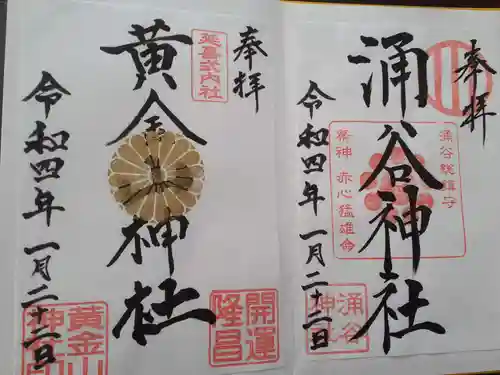 奉拝
涌谷神社
涌谷総鎮守
祭神 赤心猛雄命
涌谷
令和四年一月二十二日
奉拝
延喜式内社
黄金神社
開運
隆昌
黄金山
令和四年一月二十二日